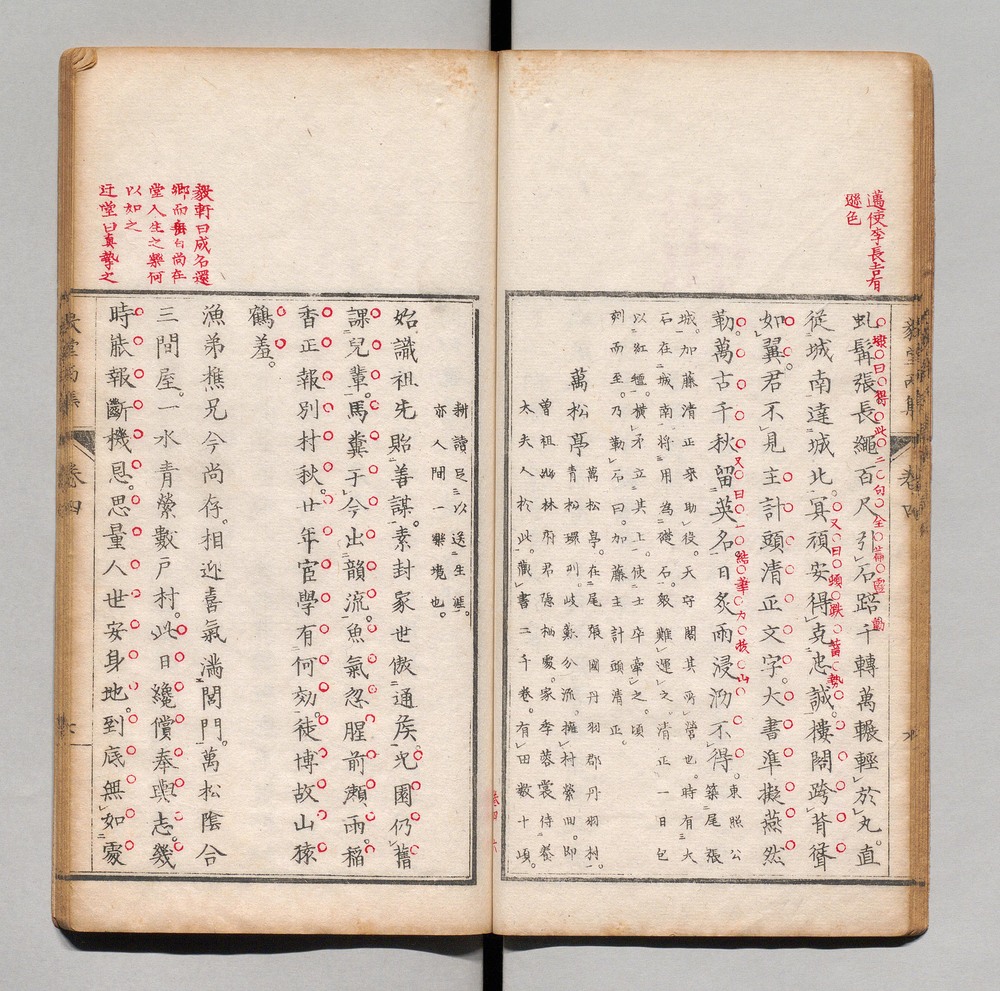 邁使李長吉有
遜色
虬髯張長繩百尺引石踣千轉萬輾輕於丸直
從城南達城北冥頑安得克忠誠樓閣跨背聳
如翼君不見主計頭清正文字大書準擬燕然
勒萬古千秋留英名日炙雨浸泐不得東照公築尾張
城加藤清正來助役天守閣其所營也時有大
石在城南將用為礎石毅難運之清正一日包
以紅氈橫矛立其上使士卒牽之頃
刻而至乃勒石曰加藤主計頭清正
萬松亭萬松亭在尾張國丹羽郡丹羽村
青松環列岐蘇分流擁村縈回即
曾祖幽林府君隱栖處家季蓉裳侍養
太夫人於此藏書二千卷有田數十頃
耕讀足以送生涯
亦人間一樂境也
始識祖先貽善謀素封家世傲通矦兄園仍舊
課兒輩馬糞于今出韻流魚氣忽腥前瀨雨稲
香正報別村秋廿年宦學有何効徒博故山猿
鶴羞
漁弟樵兄今尚存相迎喜氣滿閭門萬松陰合
三間屋一水青縈數戸村此日纔償奉輿志幾
時能報斷機恩思量人世安身地到底無如處
毅軒曰成名還
鄉而無白尚在
堂人生之樂何
以如之
迂堂曰真摯之
卷四